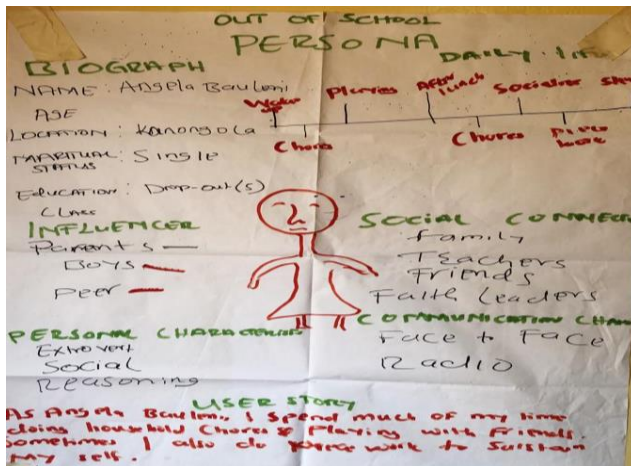 OUT OF SCHOOL
PERSONA
BIOGRAPH
NAME: Angela Bauleni
AGE
LOCATION: Kanongola
MARITUAL STATUS: Single
EDUCATION: Drop-out(s)
CLASS
DAILY LIFE
Wake up
Chores
Playing
After lunch
Chores
Socialise
Piece work
INFLUENCER
Parents —
Boys —
Peer —
SOCIAL CONNEC
Family
Teachers
Friends
Faith Leaders
PERSONAL CHARACTERIS
Extrovert
Social
Reasoning
COMMUNICATION CHAN
Face to Face
Radio
USER STORY
As Angela Bauleni, I spend much of my time
doing household chores & Playing with Friends.
Sometimes I also do piece work to Sustain
my self.